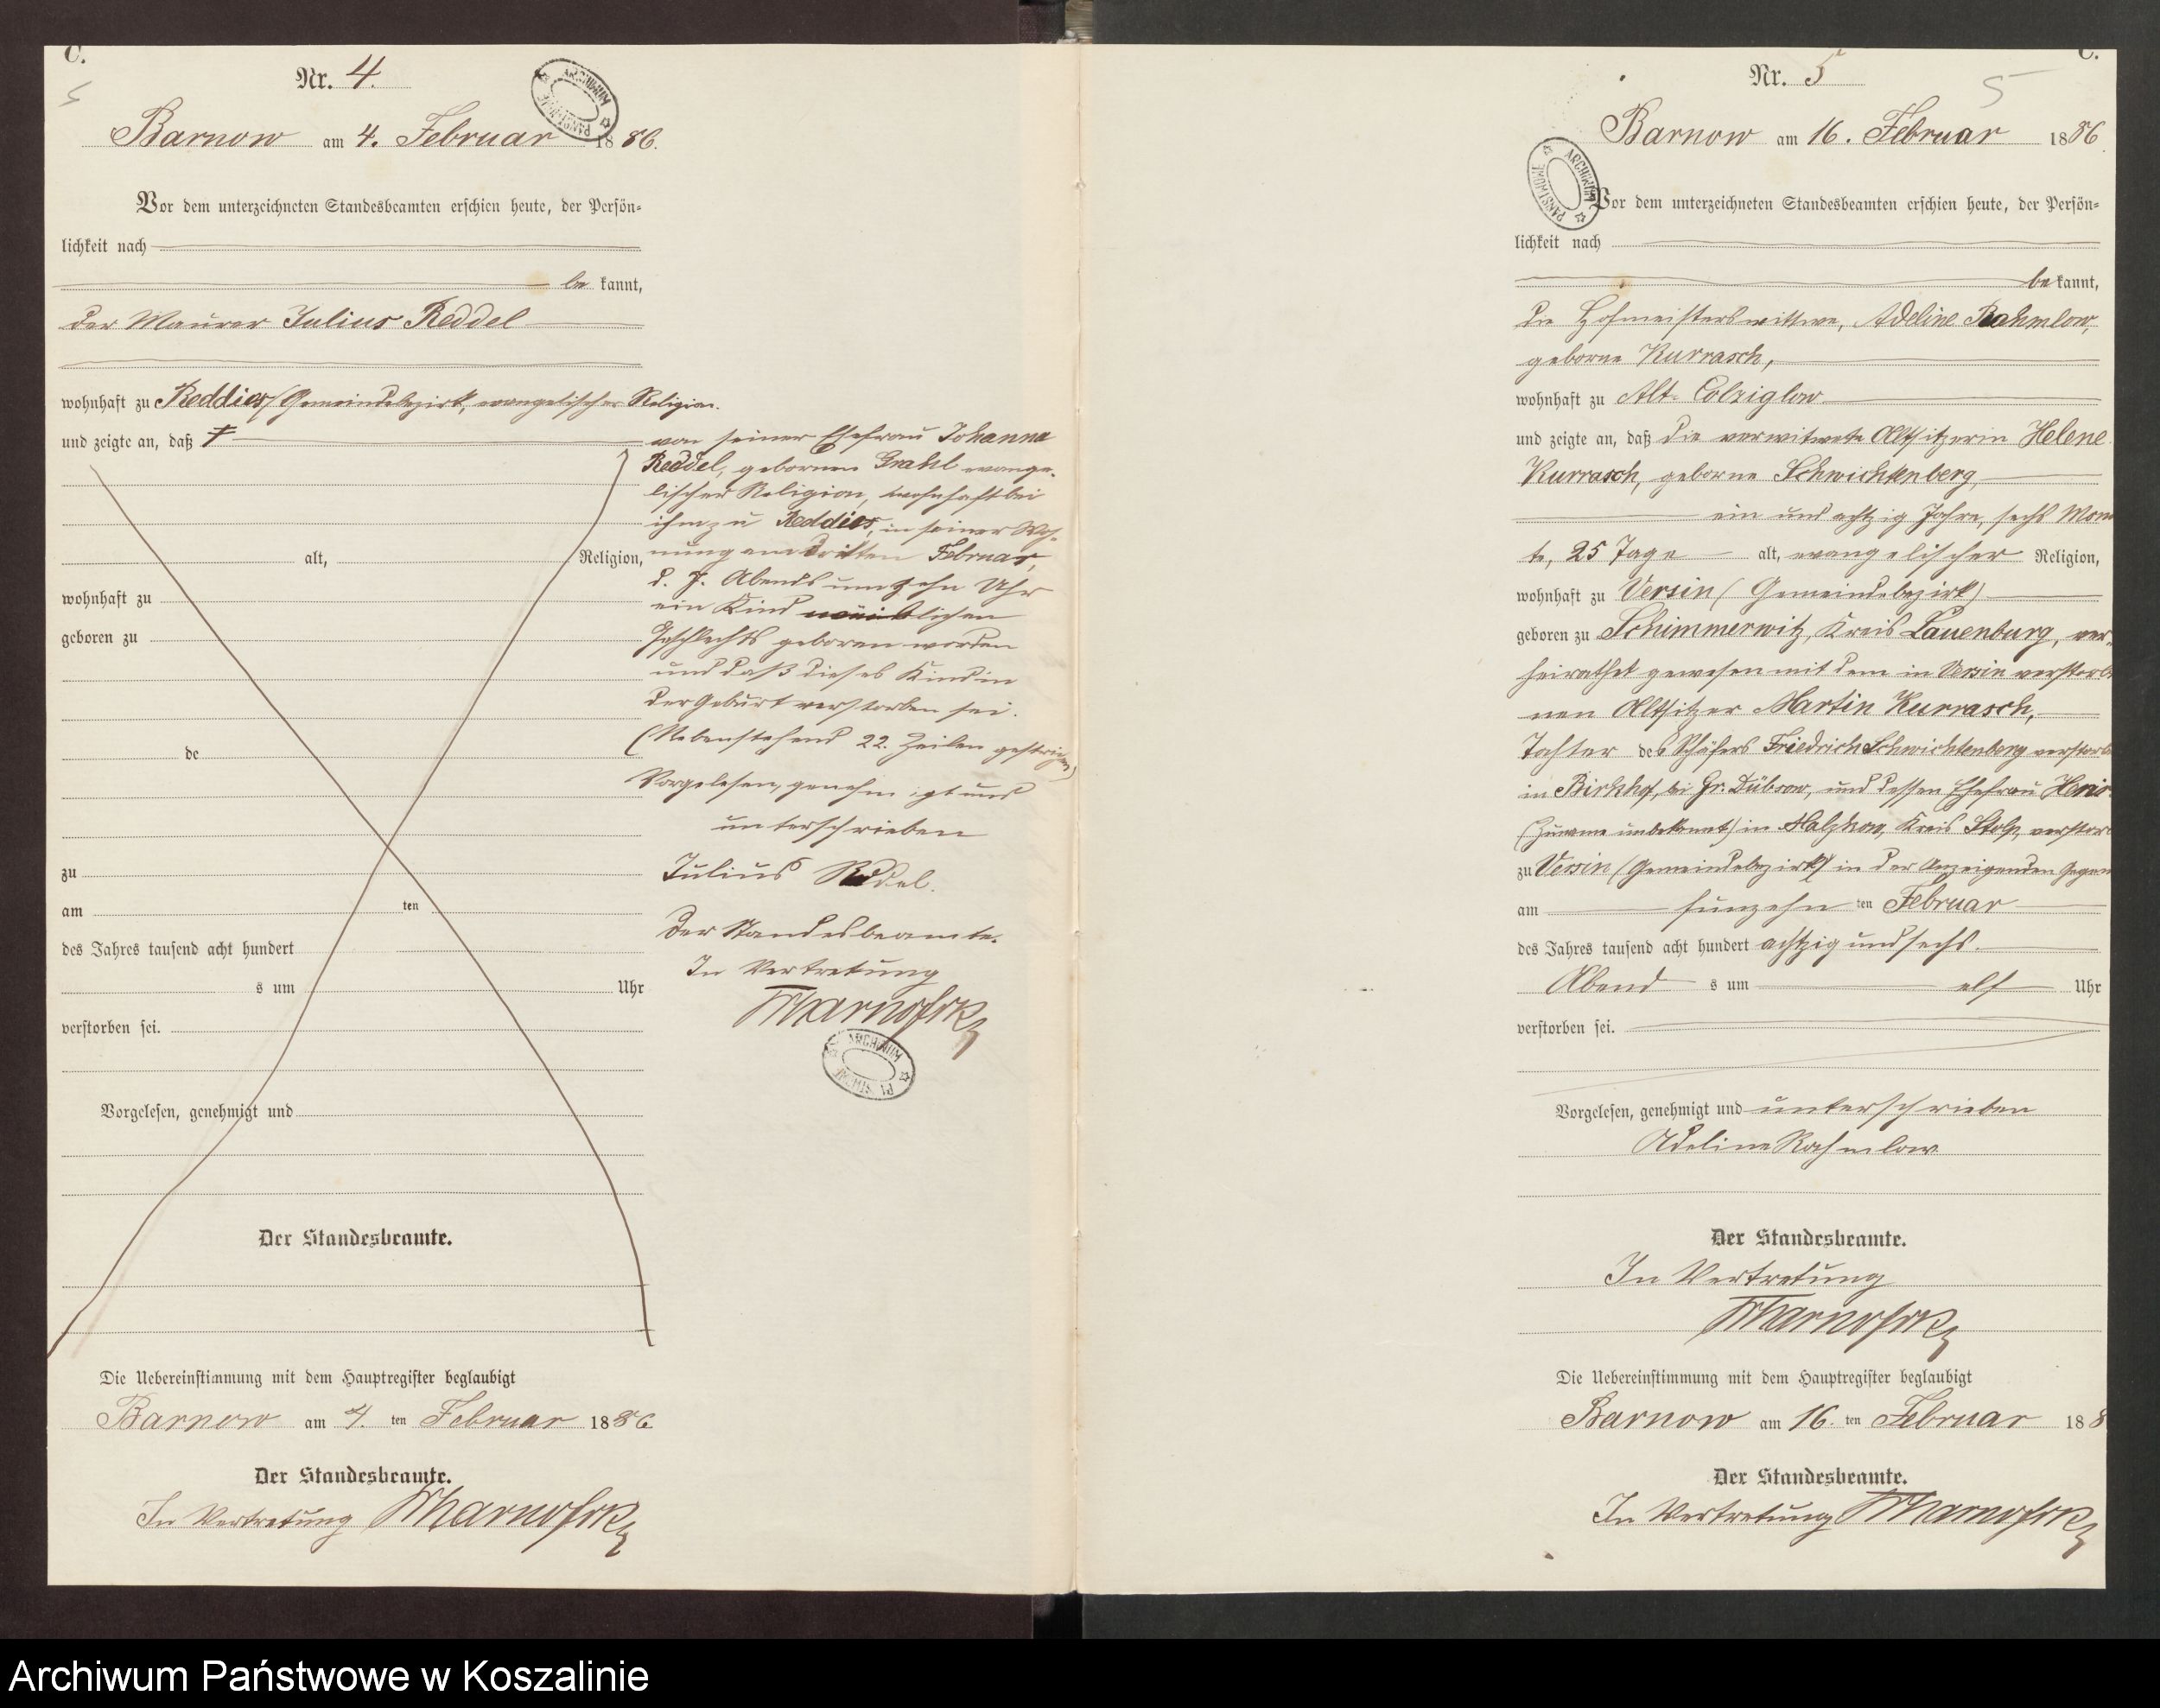 C.
Nr. 4.
ARCHIWUM PAŃSTWOWE
Barnow am 4. Februar 1886.
Vor dem unterzeichneten Standesbeamten erschien heute, der Persön-
lichkeit nach
be kannt,
der Maurer Julius Reddel
wohnhaft zu Reddies (Gemeindebezirk, evangelischer Religion.
und zeigte an, daß
alt, Religion,
wohnhaft zu
geboren zu
de
zu
am ten
des Jahres tausend acht hundert
s um Uhr
verstorben sei.
Vorgelesen, genehmigt und
Der Standesbeamte.
von seiner Ehefrau Johanna
Reddel, gebornen Grahl evange-
lischer Religion, wohnhaft bei
ihm zu Reddies, in seiner Woh-
nung am dritten Februar,
d. J. Abends um zehn Uhr
ein Kind
Geschlechts geboren worden
und daß dieses Kind in
der Geburt verstorben sei.
(Nebenstehend 22. Zeilen gestrichen)
Vorgelesen, genehmigt und
unterschrieben
Julius Reddel.
Der Standesbeamte.
In Vertretung
ARCHIWUM
Die Uebereinstimmung mit dem Hauptregister beglaubigt
Barnow am 4. ten Februar 1886
Der Standesbeamte.
In Vertretung
C.
Nr. 5
5
Barnow am 16. Februar 1886.
ARCHIWUM PAŃSTWOWE
Vor dem unterzeichneten Standesbeamten erschien heute, der Persön-
lichkeit nach
be kannt,
die Hofmeisterswittwe, Adeline Rahmlow,
geborne Kurrasch,
wohnhaft zu Alt-Colziglow
und zeigte an, daß die verwitwete Altsitzerin Helene
Kurrasch, geborne Schwichtenberg,
ein und achtzig Jahre, sechs Mona
te, 25 Tage alt, evangelischer Religion,
wohnhaft zu Versin (Gemeindebezirk)
geboren zu Schimmerwitz, Kreis Lauenburg, ver-
heirathet gewesen mit dem in Versin verstorbe
nen Altsitzer Martin Kurrasch,
Tochter des Schäfers Friedrich Schwichtenberg verstorben
in Birkhof, bei Gr. Dübsow, und dessen Ehefrau
(Zuname unbekannt) in Malzkow, Kreis Stolp, verstor
zu Versin (Gemeindebezirk) in der Anzeigenden Gegen
am funzehn ten Februar
des Jahres tausend acht hundert achtzig und sechs.
Abend s um elf Uhr
verstorben sei.
Vorgelesen, genehmigt und unterschrieben
Adeline Rahmlow
Der Standesbeamte.
In Vertretung
Die Uebereinstimmung mit dem Hauptregister beglaubigt
Barnow am 16. ten Februar 188
Der Standesbeamte.
In Vertretung
Archiwum Państwowe w Koszalinie